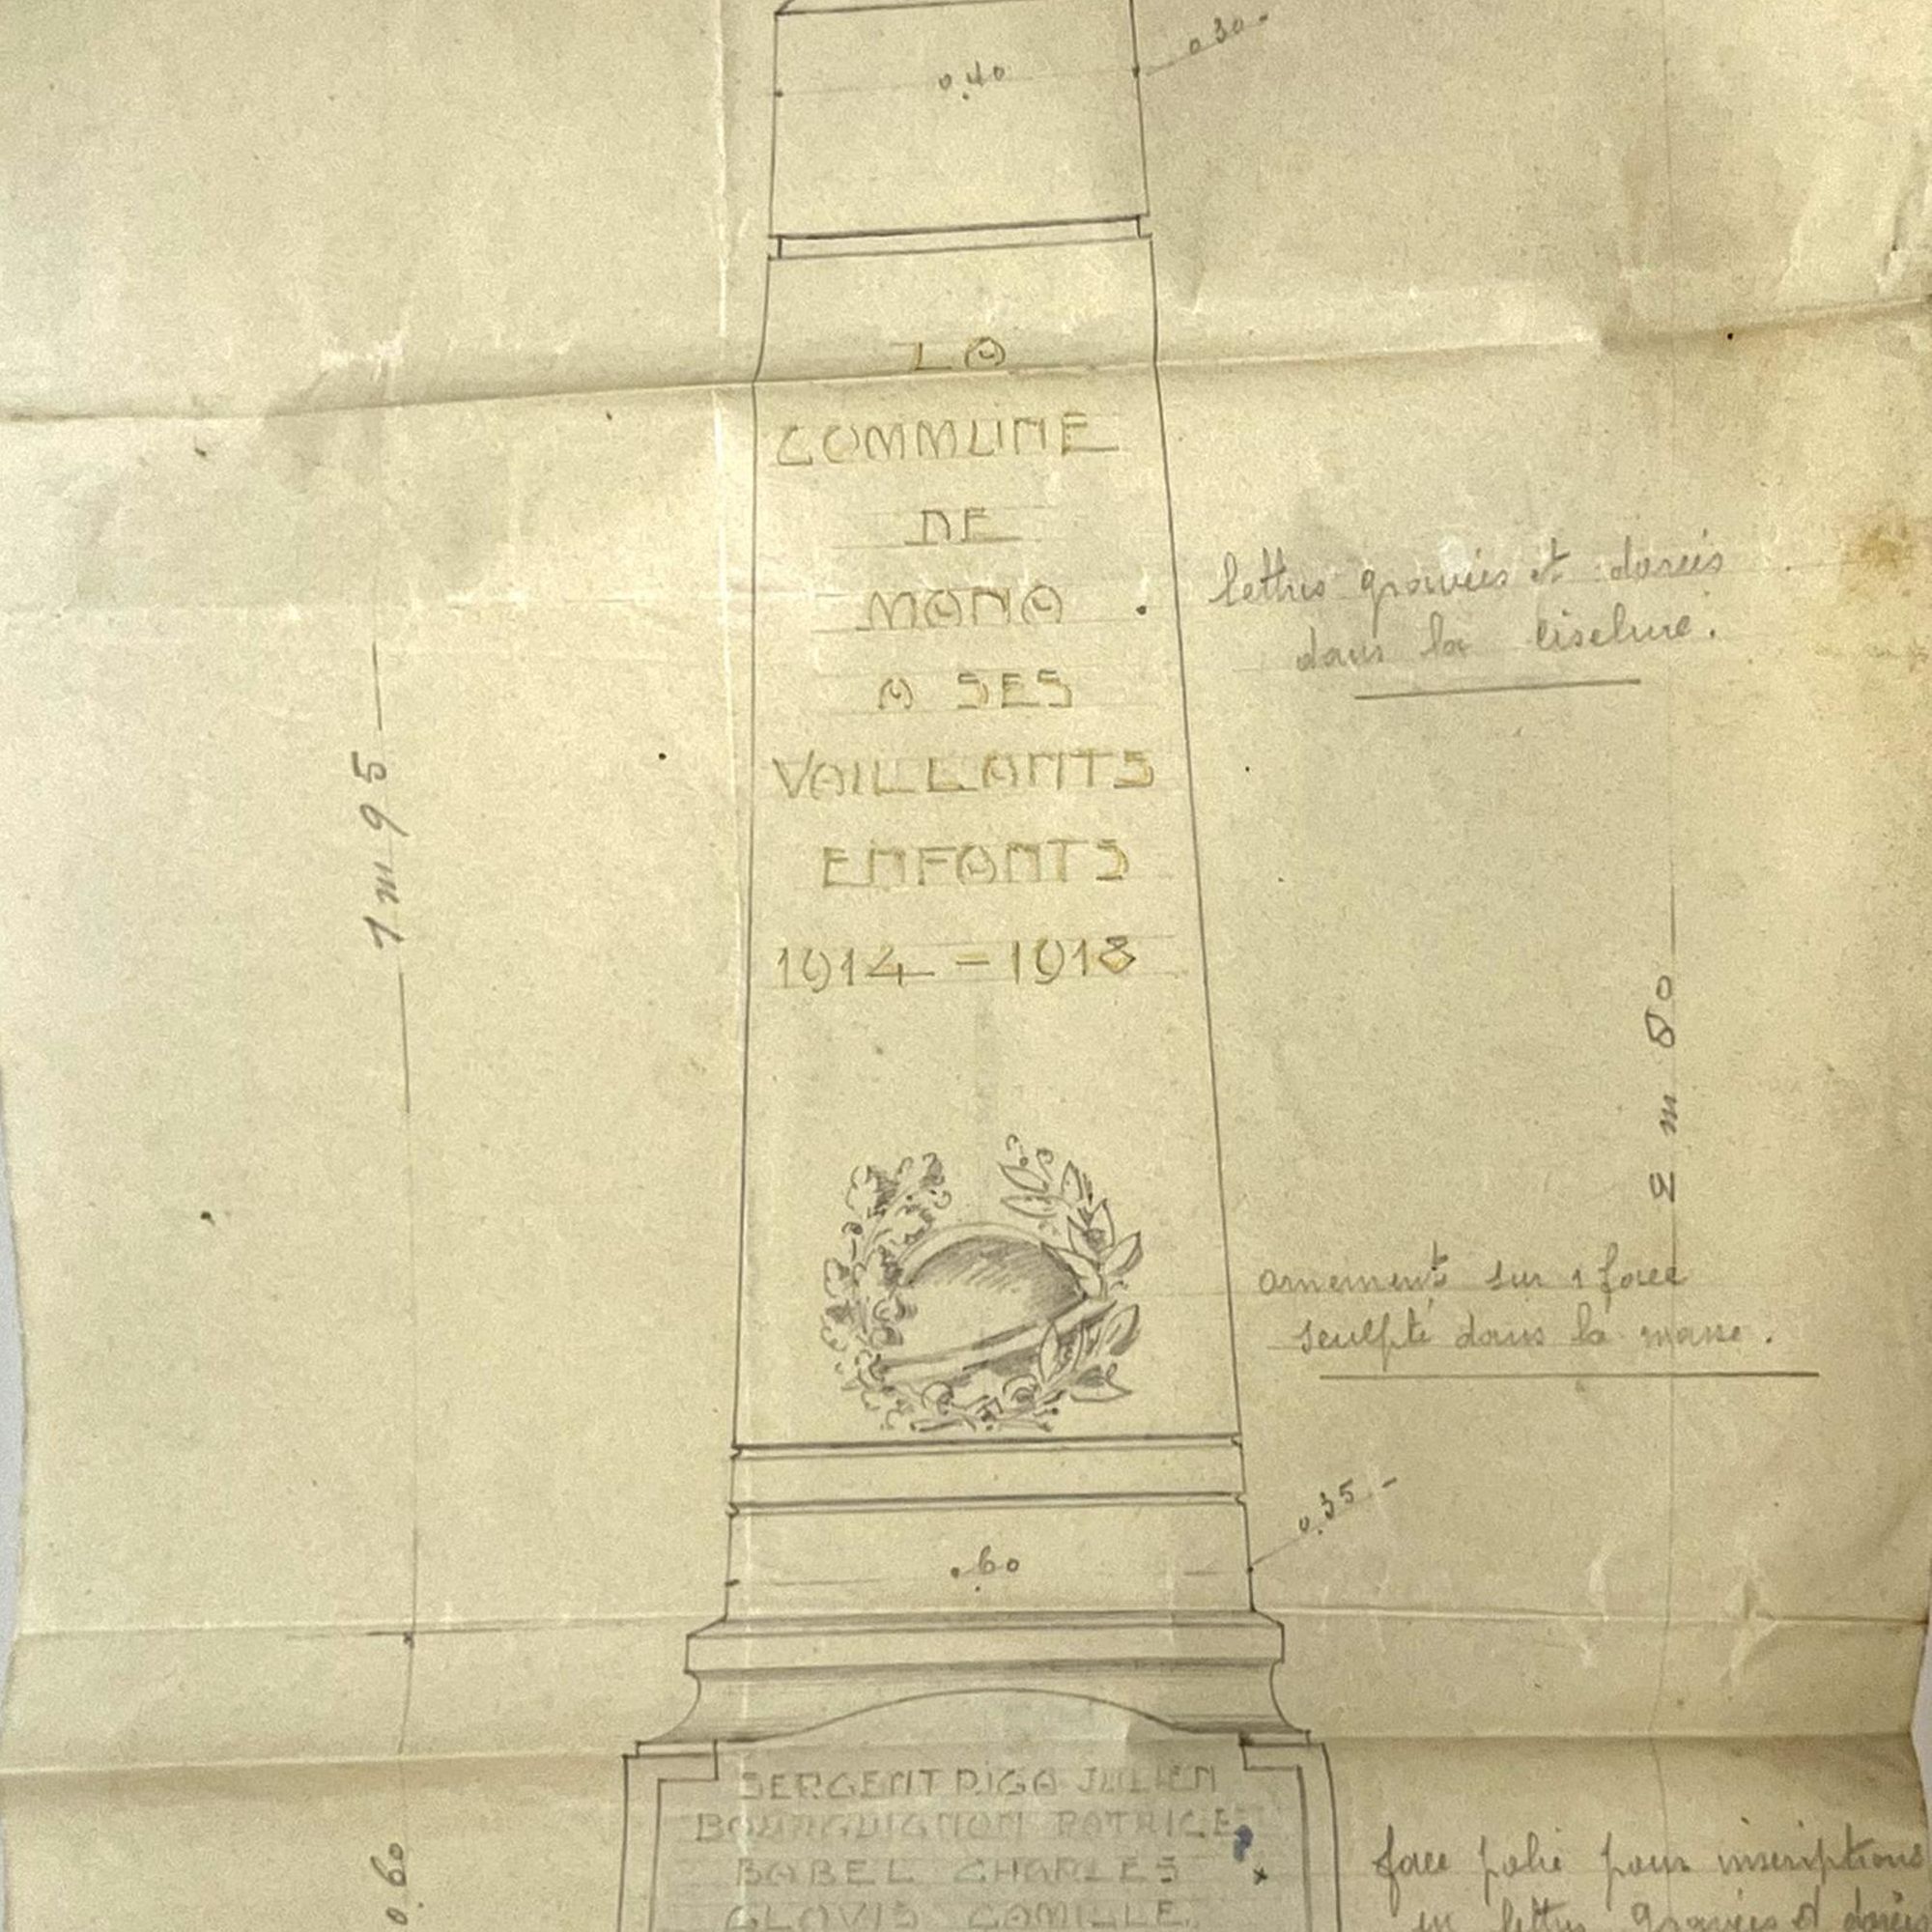 0.40
0.30
LA
COMMUNE
DE
MANA
A SES
VAILLANTS
ENFANTS
1914 = 1918
lettres gravées et dorées
dans la ciselure.
1m95
2m80
ornements sur 1 face
sculpté dans la masse.
0.35
.60
SERGENT RIGA JULIEN
BOURGUIGNON PATRICE
BABEL CHARLES
CLOVIS CAMILLE
0.60
face polie pour inscriptions
en lettres gravées et dorées